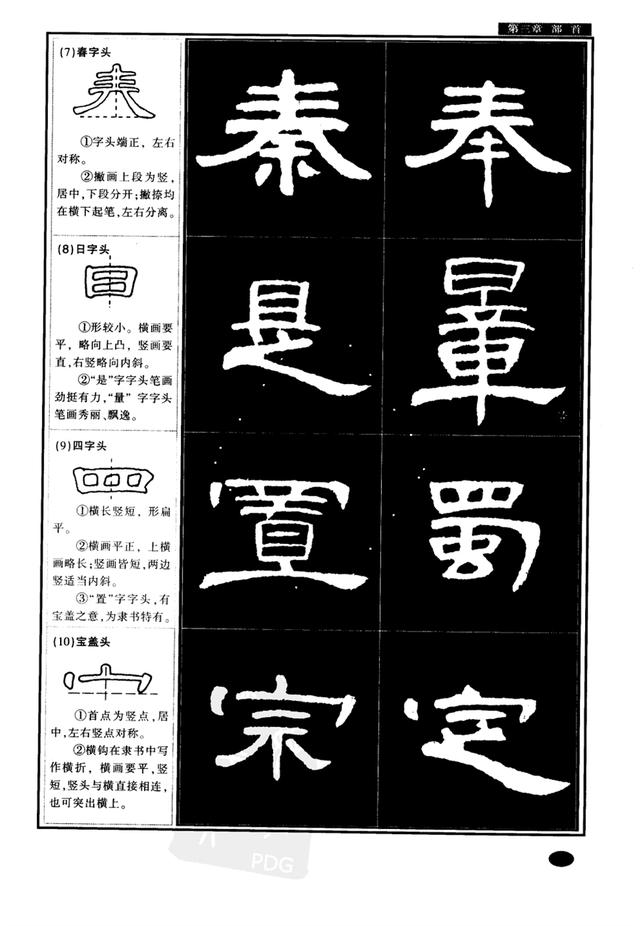 第三章 部 首
(7)春字头
①字头端正，左右
对称。
②撇画上段为竖，
居中，下段分开；撇捺均
在横下起笔，左右分离。
秦 奉
(8)日字头
①形较小。横画要
平，略向上凸，竖画要
直，右竖略向内斜。
②“是”字字头笔画
劲挺有力，“量”字字头
笔画秀丽、飘逸。
是 量
(9)四字头
①横长竖短，形扁
平。
②横画平正，上横
画略长；竖画皆短，两边
竖适当内斜。
③“置”字字头，有
宝盖之意，为隶书特有。
置 蜀
(10)宝盖头
①首点为竖点，居
中，左右竖点对称。
②横钩在隶书中写
作横折，横画要平，竖
短，竖头与横直接相连，
也可突出横上。
宗 定
PDG